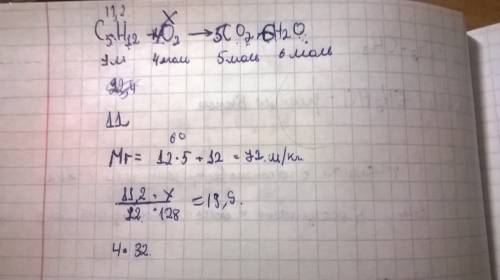 11,2 X
C₅H₁₂ + 4O₂ → 5CO₂ + 6H₂O
1м 4мол 5мол 6мол
22,4
11
60
Mr = 12·5 + 12 = 72 м/кг
11,2 · X
22 · 128 = 19,6.
4·32